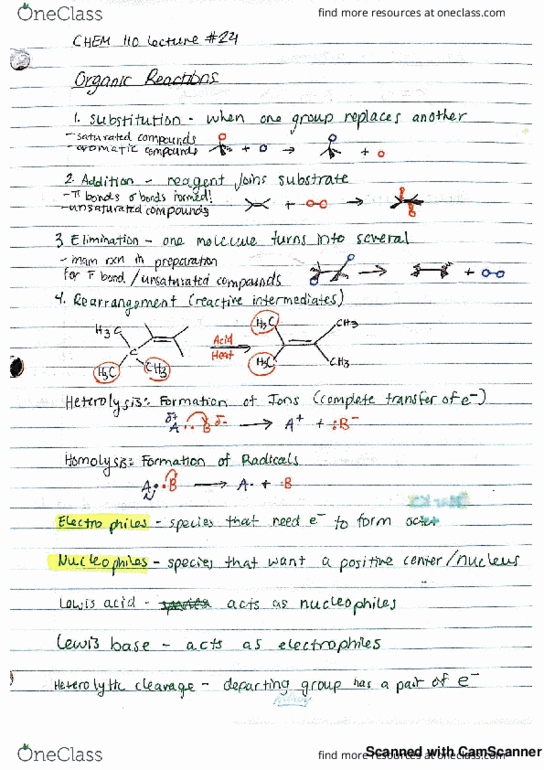 OneClass
find more resources at oneclass.com
CHEM 110 Lecture #24
Organic Reactions
1. Substitution - when one group replaces another
- saturated compounds
- aromatic compounds
+ → +
2. Addition - reagent joins substrate
- π bonds σ bonds formed!
- unsaturated compounds
+ →
3. Elimination - one molecule turns into several
- main rxn in preparation
for π bond / unsaturated compounds
→ +
4. Rearrangement (reactive intermediates)
H₃C C H₃C CH₃
Acid
Heat
H₃C CH₃
H₃C CH₃
Heterolysis: Formation of Ions (complete transfer of e⁻)
δ+ A : B δ- → A⁺ + :B⁻
Homolysis: Formation of Radicals
A : B → A· + ·B
Electrophiles - species that need e⁻ to form octet
Nucleophiles - species that want a positive center/nucleus
Lewis acid - acts as nucleophiles
Lewis base - acts as electrophiles
Heterolytic cleavage - departing group has a pair of e⁻
OneClass
find more resources at oneclass.com
Scanned with CamScanner